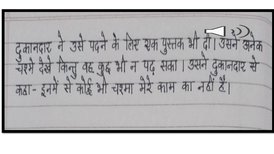 दुकानदार ने उसे पढ़ने के लिए एक पुस्तक भी दी। उसने अनेक
चश्मे देखे किन्तु वह कुछ भी न पढ़ सका। उसने दुकानदार से
कहा- इनमें से कोई भी चश्मा मेरे काम का नहीं है।